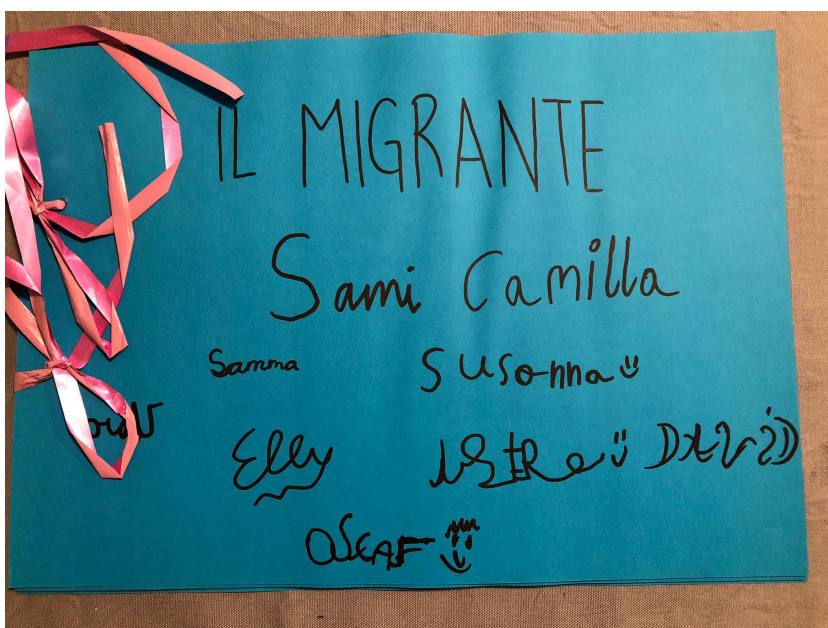 IL MIGRANTE
Sami Camilla
Samma Susonna
Elly DAViD
OSCAF